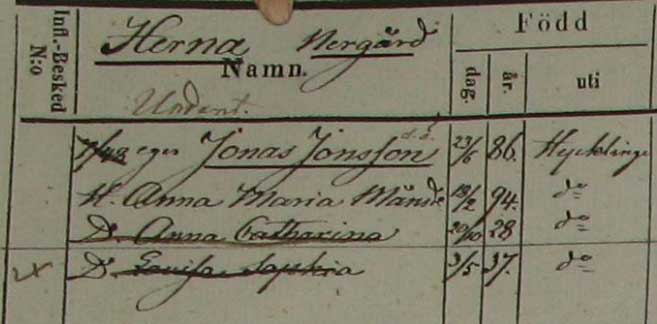 Infl.-Besked N:o
Herna Nergård
Namn.
Undant.
Född
dag. år. uti
1/48 eger Jonas Jonsson d.ä. 23/6 86. Hycklinge
H. Anna Maria Månsd 18/2 94. do
D. Anna Catharina 20/10 28 do
D. Lovisa Sophia 3/5 37. do